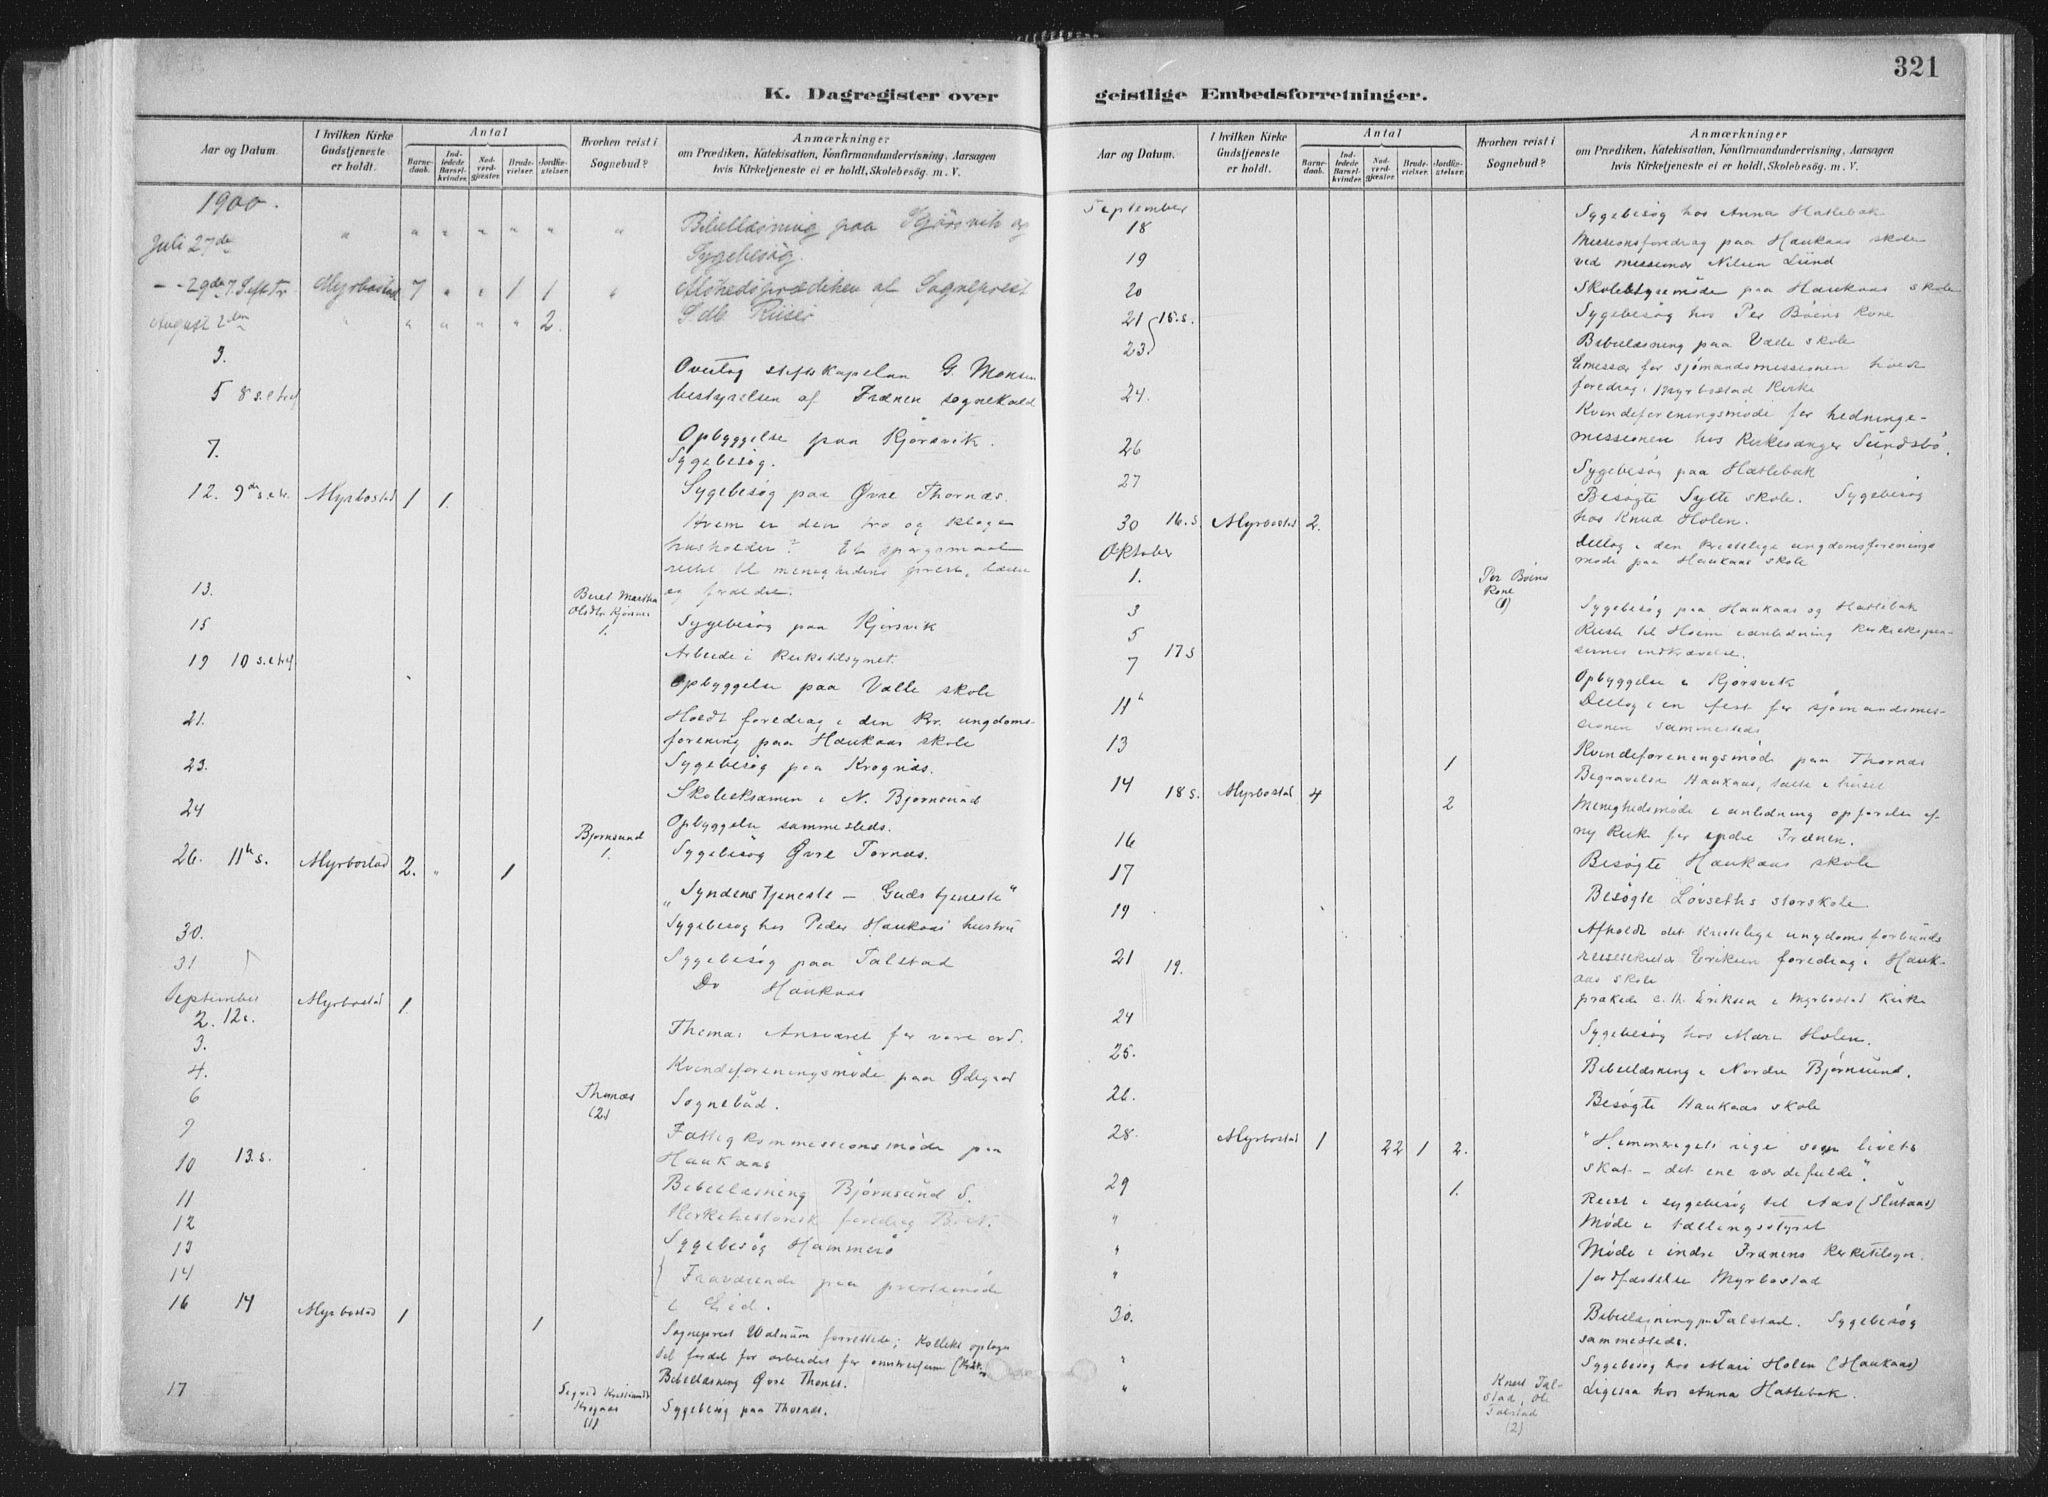 321
K. Dagregister over
geistlige Embedsforretninger.
Aar og Datum.
I hvilken Kirke
Gudstjeneste
er holdt.
Antal
Barne-
daab.
Ind-
ledede
Barsel-
kvinder.
Nad-
verd-
gjæster.
Brude-
vielser.
Jordfæ-
stelser.
Hvorhen reist i
Sognebud?
Anmærkninger
om Prædiken, Katekisation, Konfirmandundervisning, Aarsagen
hvis Kirketjeneste ei er holdt, Skolebesøg. m. V.
1900.
Juli 27de " " " " " " " Bibellæsning paa Kjörsvik og
Sygebesög.
- - 29de 7. S. eft. Tr. Myrbostad 7 " " 1 1 " Afskedsprædiken af Sogneprest
August 2den " " " " " 2.
3. Overtog stiftskapelan G. Monsen
5 8 s. e. tref bestyrelsen af Frænen sognekald
7. Opbyggelse paa Kjørsvik.
Sygebesøg.
12. 9de s. e. tr. Myrbostad 1 1. Sygebesøg paa Øvre Thornæs.
Hvem er den tro og kloge
husholder? Et spørgsmaal
rettet til menighedens prest, lærere
og forældre.
13. Beret Martha
Olsdtr Kjørsvik
1.
15 Sygebesøg paa Kjørsvik
19 10 s. e. tref. Arbeide i Kirketilsynet.
Opbyggelse paa Valle skole
21. Holdt foredrag i den Kr. ungdoms-
forening paa Haukaas skole
23. Sygebesøg paa Krognæs.
24 Skoleeksamen i N. Bjørnsund
Opbyggelse sammesteds.
Bjørnsund
1.
26. 11te s. Myrbostad 2. " 1 Sygebesøg Øvre Tornæs.
"Syndens tjeneste — Guds tjeneste"
30. Sygebesøg hos Peder Haukaas hustru
31 Sygebesøg paa Talstad
Do Haukaas
September Myrbostad 1.
2. 12s. Thema: Ansvaret for vore ord.
3.
4. Kvindeforeningsmøde paa Ødegaard
6 Thornæs
(2)
Sognebud.
9 Fattigkommissionsmøde paa
10 13. s. Haukaas
11 Bibellæsning Bjørnsund S.
12 Kirkehistorisk foredrag B. N.
13 Sygebesøg Hammerø
14 Fraværende paa prestemøde
i Eid.
16 14 Myrbostad 1 1
Sogneprest Walnum forrettede; Kollekt optoges
til fordel for arbeidet for omstreiferne
Bibellæsning Øvre Thornes.
17 Sigrid Kristiansdt
Krognæs
(1)
Sygebesøg paa Thornæs.
Aar og Datum.
I hvilken Kirke
Gudstjeneste
er holdt.
Antal
Barne-
daab.
Ind-
ledede
Barsel-
kvinder.
Nad-
verd-
gjæster.
Brude-
vielser.
Jordfæ-
stelser.
Hvorhen reist i
Sognebud?
Anmærkninger
om Prædiken, Katekisation, Konfirmandundervisning, Aarsagen
hvis Kirketjeneste ei er holdt, Skolebesøg. m. V.
September
18 Sygebesøg hos Anna Hatlebak
Missionsforedrag paa Haukaas skole
19 ved missionær Nilsen Lund
20 Skolestyremøde paa Haukaas skole
21 15. s. Sygebesøg hos Per Bøens Kone
23. Bibellæsning paa Valle skole
Emissær for sjømandsmissionen holdt
24. foredrag i Myrbostad Kirke
Kvindeforeningsmøde for hedninge-
26 missionen hos Kirkesanger Sundsbø.
27 Sygebesøg paa Hatlebak
Besøgte Sylte skole. Sygebesøg
30 16. s. Myrbostad 2. hos Knud Holen.
Oktober Deltog i den Kristelige ungdomsforenings
møde paa Haukaas skole
1. Per Bøens
Kone
(1)
3 Sygebesøg paa Haukaas og Hatlebak
5 Reiste til Hoem i anledning kirkeekspen-
17 s sernes indkrævelse.
7 Opbyggelse i Kjørsvik
11te Deltog i en fest for sjømandsmis-
sionen sammesteds
13 Kvindeforeningsmøde paa Thornæs
1 Begravelse Haukaas, talte i huset
14 18 s. Myrbostad 4 2 Menighedsmøde i anledning opførelse af
16 ny Kirke for indre Frænen.
17 Besøgte Haukaas skole
19 Besøgte Løvseths storskole
Afholdt det Kristelige ungdomsforbunds
21 19. reisesekretær Eriksen foredrag i Hauk-
aas skole
prækede C. Th. Eriksen i Myrbostad Kirke
24 Sygebesøg hos Mari Holen.
25. Bibellæsning i Nordre Bjørnsund.
26. Besøgte Haukaas skole
28. Myrbostad 1 22 1 2. "Himmeriges rige som livets
skat — det ene værdefulde".
29 1. Reist i sygebesøg til Aas (Slutaas)
" Møde i tællingsstyret
" Møde i indre Frænens Kirketilsyn.
" Jordfæstelse Myrbostad
30. Bibellæsning paa Talstad. Sygebesøg
sammesteds.
" Sygebesøg hos Mari Holen (Haukaas)
" Knut Tal-
stad, Ole
Talstad
(2)
Ligesaa hos Anna Hatlebak.